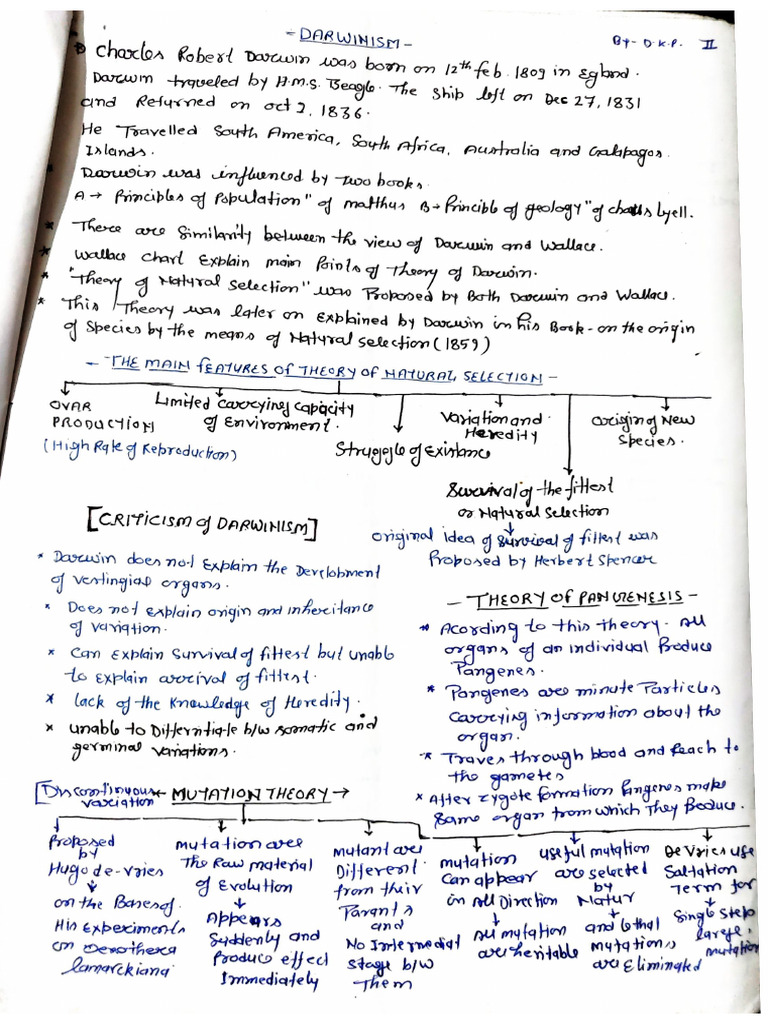 - DARWINISM -
By- D.K.P. II
Charles Robert Darwin was born on 12th feb. 1809 in Eglond.
Darwin traveled by H.M.S. Beagle. The ship left on Dec 27, 1831
and Returned on oct 2, 1836.
He Travelled South America, South Africa, Australia and Galapagos
Islands.
Darwin was influenced by two books.
A → Principles of Population" of malthus B → Principle of geology" of charls lyell.
* There are Similarity between the view of Darwin and Wallace.
* Wallace chart Explain main Points of Theory of Darwin.
* "Theory of Natural Selection" was Proposed by Both Darwin and Wallace.
* This Theory was later on Explained by Darwin in his Book - on the origin
of Species by the means of Natural selection (1859)
- THE MAIN FEATURES OF THEORY OF NATURAL SELECTION -
OVAR
PRODUCTION
(High Rate of Reproduction)
Limited carrying capacity
of Environment.
Struggle of Existance
Variation and
Heredity
Survival of the fittest
or Natural Selection
Origing of New
Species.
original idea of survival of fittest was
Proposed by Herbert Spencer
[CRITICISM of DARWINISM]
* Darwin does not Explain the Development
of vestingial organs.
* Does not explain origin and inheritance
of variation.
* Can Explain Survival of fittest but unable
to explain arrival of fittest.
* lack of the Knowledge of Heredity.
* unable to Differntiate b/w somatic and
germinal variations.
- THEORY OF PANGENESIS -
* Acording to this theory. All
organs of an individual Produce
Pangenes.
* Pangenes are minute Particles
carrying information about the
organ.
* Traves through blood and Reach to
the gametes
* After zygote formation Pangenes make
Same organ from which They Produce.
[Discontinuous
variation ← MUTATION THEORY →
Proposed
by
Hugo de-vries
on the Bases of
His Experiments
on Oenothera
lamarckiana
mutation are
The Raw material
of Evolution
Appears
Suddenly and
Produce effect
Immediately
Mutant are
Different
from their
Parants
and
No Intermediat
stage b/w
Them
mutation
can appear
in All Direction
All mutation
are heritable
useful mutation
are selected
by
Natur
and lethal
mutations
are Eliminated
De Vries use
Saltation
Term for
Single step
large
mutation